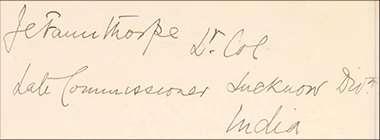 JC Faunthorpe Lt. Col.
Late Commissioner Lucknow Divn
India